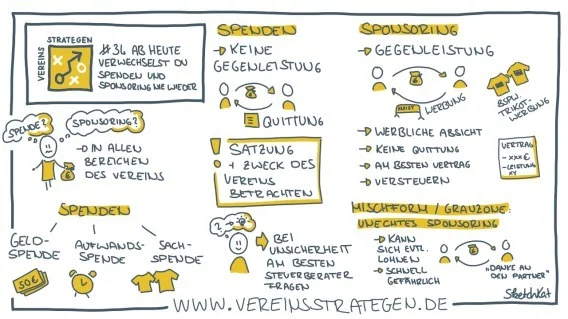 VEREINS
STRATEGEN
#36 AB HEUTE
VERWECHSELST DU
SPENDEN UND
SPONSORING NIE WIEDER
SPENDE?
SPONSORING?
→ IN ALLEN
BEREICHEN
DES VEREINS
SPENDEN
GELD-
SPENDE
AUFWANDS-
SPENDE
SACH-
SPENDE
50€
SPENDEN
→ KEINE
GEGENLEISTUNG
QUITTUNG
! SATZUNG
+ ZWECK DES
VEREINS
BETRACHTEN
?
BEI
UNSICHERHEIT
AM BESTEN
STEUERBERATER
FRAGEN
SPONSORING
→ GEGENLEISTUNG
WERBUNG
BSPW.
TRIKOT-
WERBUNG
→ WERBLICHE ABSICHT
→ KEINE QUITTUNG
→ AM BESTEN VERTRAG
→ VERSTEUERN
VERTRAG
- XXX€
- LEISTUNG
XY
MISCHFORM / GRAUZONE:
UNECHTES SPONSORING
→ KANN
SICH EVTL.
LOHNEN
→ SCHNELL
GEFÄHRLICH
"DANKE AN
DEN PARTNER"
SketchKat
WWW.VEREINSSTRATEGEN.DE